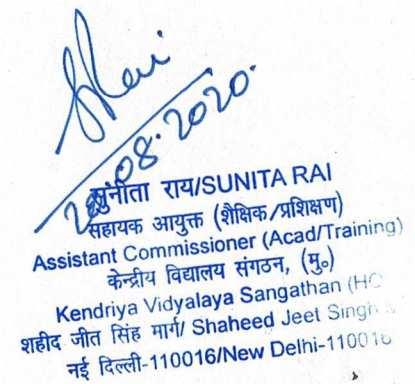 28.08.2020.
सुनीता राय/SUNITA RAI
सहायक आयुक्त (शैक्षिक/प्रशिक्षण)
Assistant Commissioner (Acad/Training)
केन्द्रीय विद्यालय संगठन, (मु॰)
Kendriya Vidyalaya Sangathan (HQ
शहीद जीत सिंह मार्ग/ Shaheed Jeet Singh
नई दिल्ली-110016/New Delhi-110016